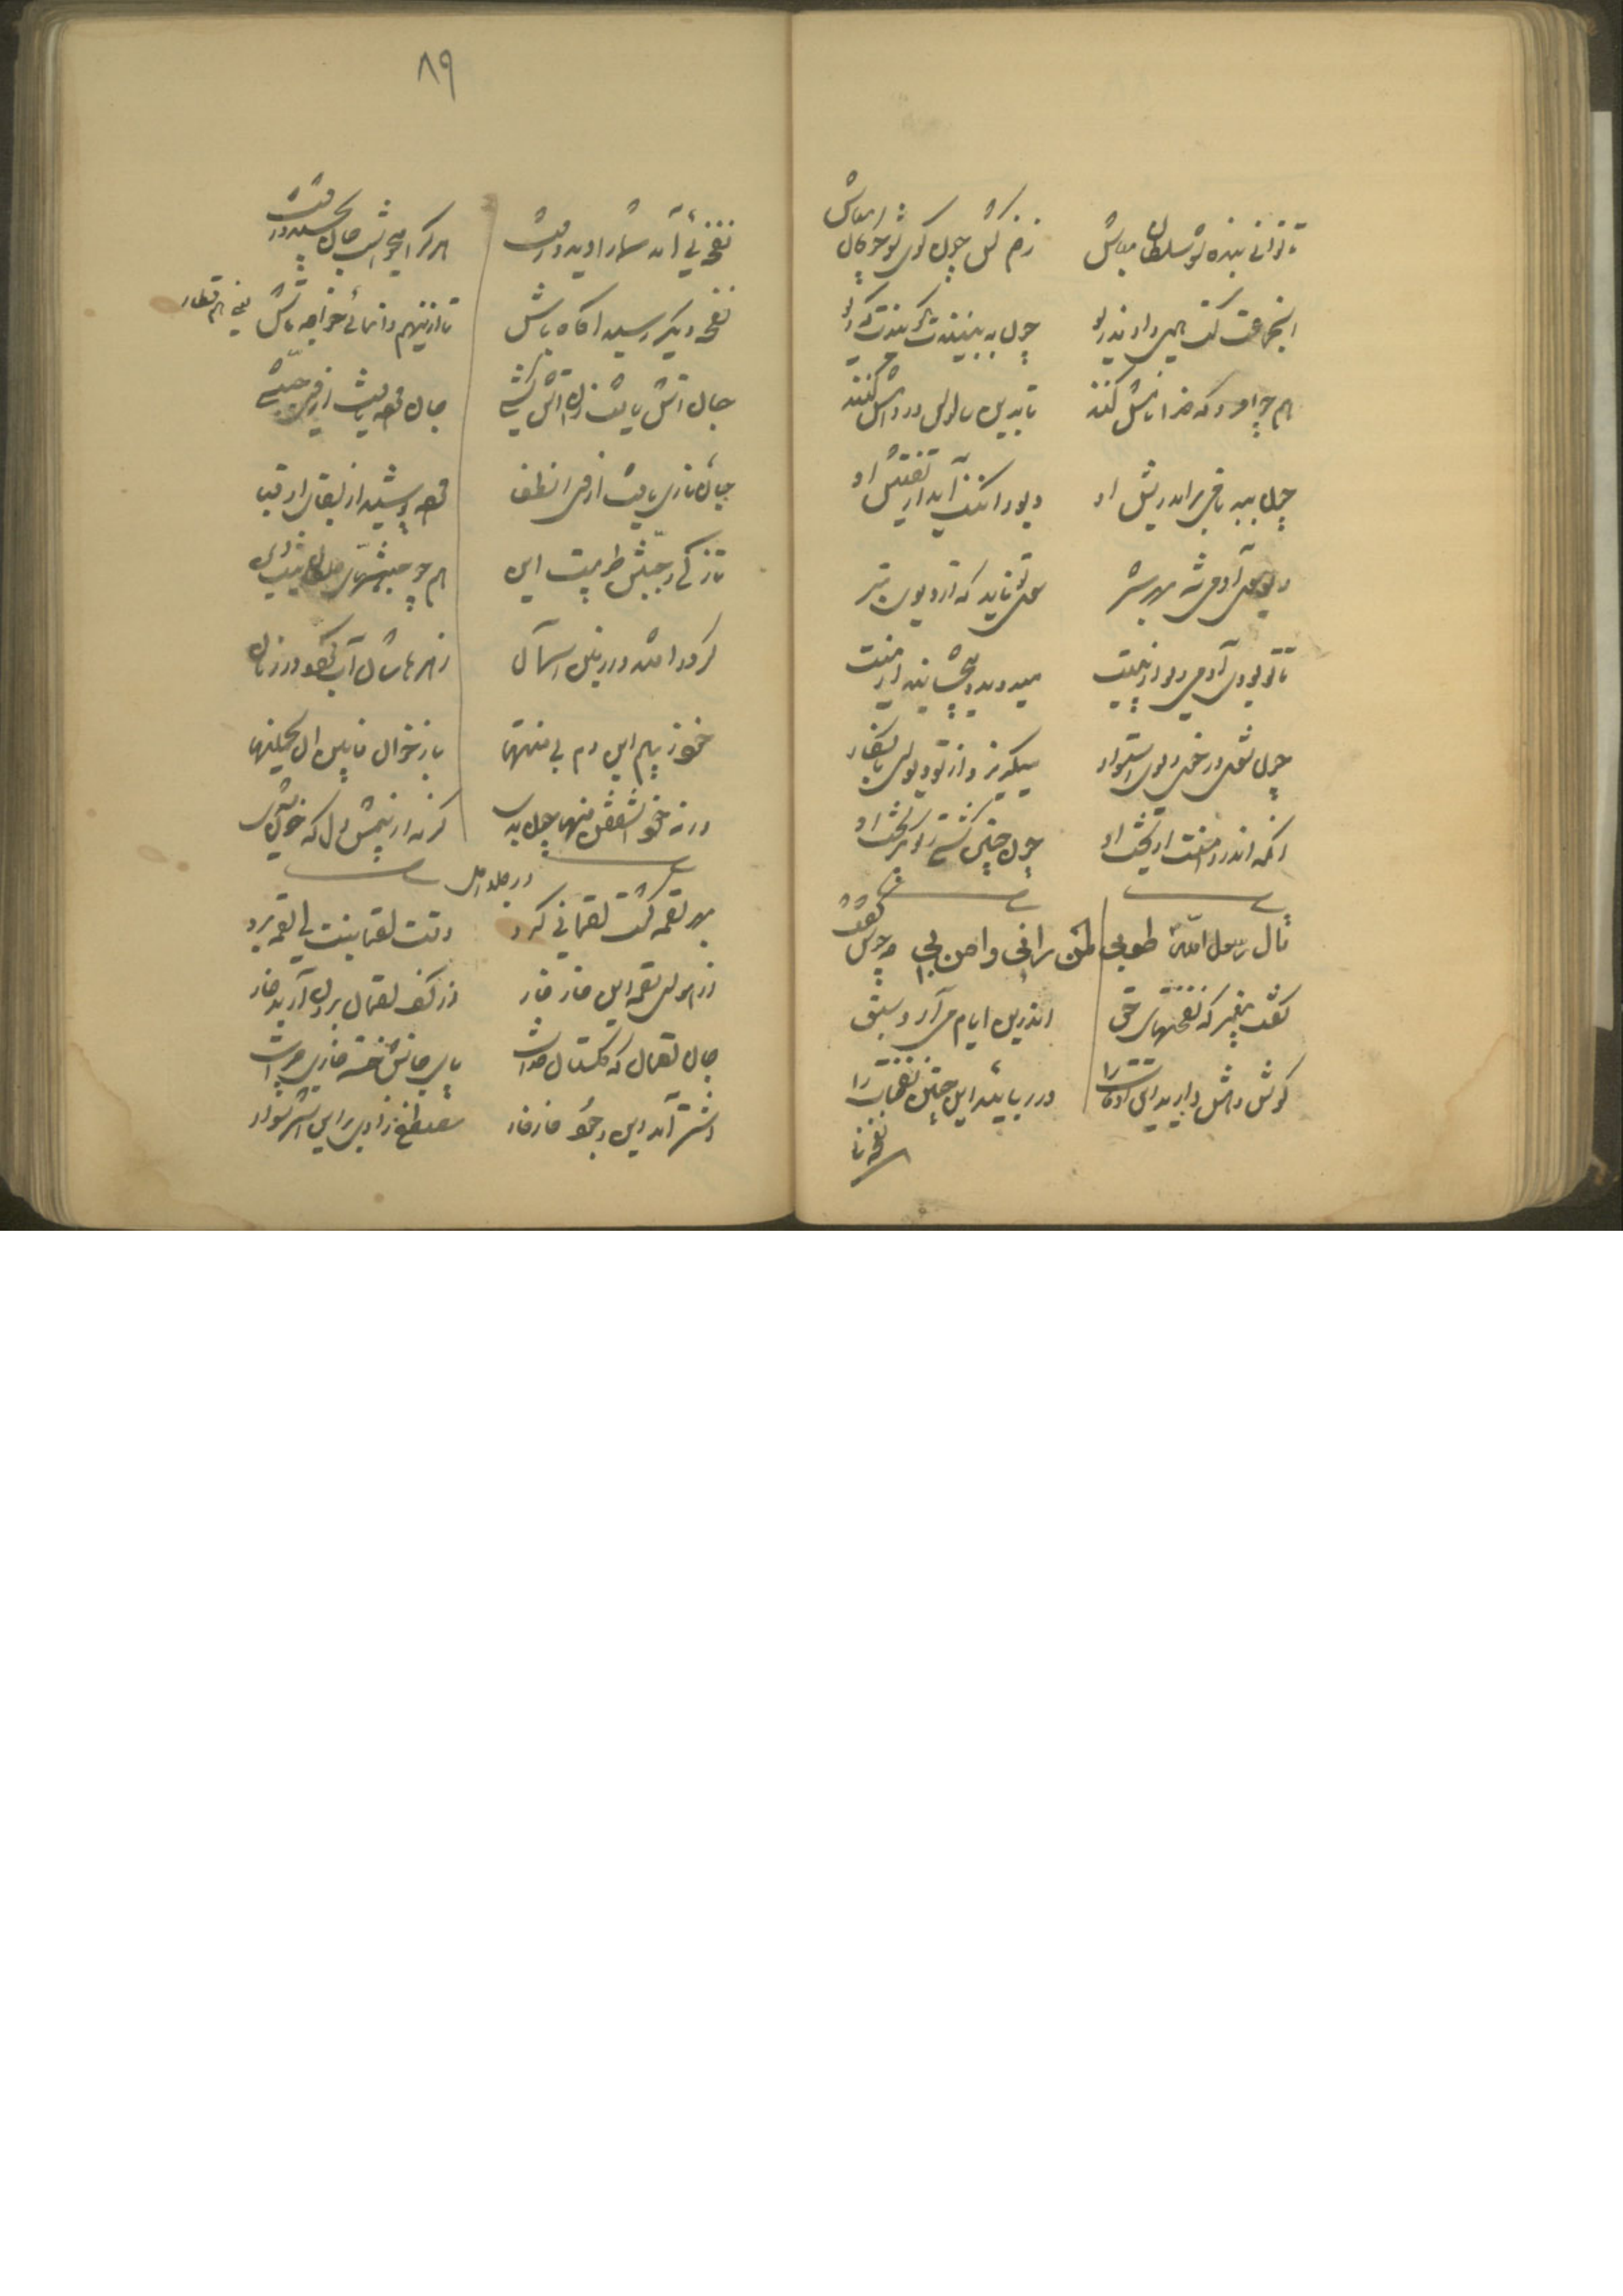 تا توانی بنده شو سلطان مباش
زخم کش چون گوی شو چوگان مباش
آنجماعت کت همی دادند ریو
چون ببینندت بگویندت که دیو
همچو امرد که خدا نامش کنند
تا بدین سالوس در دامش کنند
دیو سوی آدمی شد بهر شر
سوی تو ناید که از دیوی بتر
تا تو بودی آدمی دیو از پیت
میدوید و میچشانید از میت
چون شدی در خوی دیوی استوار
میگریزد از تو دیو نابکار
آنکه اندر دامنت آویخت او
چون چنین گشتی ز تو بگریخت او
قال رسول الله طوبی لمن رانی وامن بی
گفت پیغمبر که نفحتهای حق
اندرین ایام می آرد سبق
گوش و هش دارید این اوقات را
در ربایید این چنین نفحات را
۸۹
نفحه ئی آمد شما را دید و رفت
هر کرا میخواست جان بخشید و رفت
نفحه دیگر رسید آگاه باش
تا ازینهم وانمانی خواجه تاش
جان آتش یافت زان آتش کشی
تازگی و جنبش طوبیست این
همچو جنبشهای
گر در افتد در زمین و آسمان
زهره هاشان آب گردد در زمان
خود ز بیم این دم بی منتها
باز خوان فابین ان یحملنها
ورنه خود اشفقن منها چون بدی
گرنه از بیمش دل که خون شدی
بهر لقمه گشت لقمانی گرو
وقت لقمانیست ای لقمه برو
از هوای لقمه این خار خار
از کف لقمان برون آرید خار
جان لقمان که گلستان خداست
پای جانش خسته خاری چراست
اشتر آمد این وجود خار خوار
مصطفی زادی برین اشتر سوار